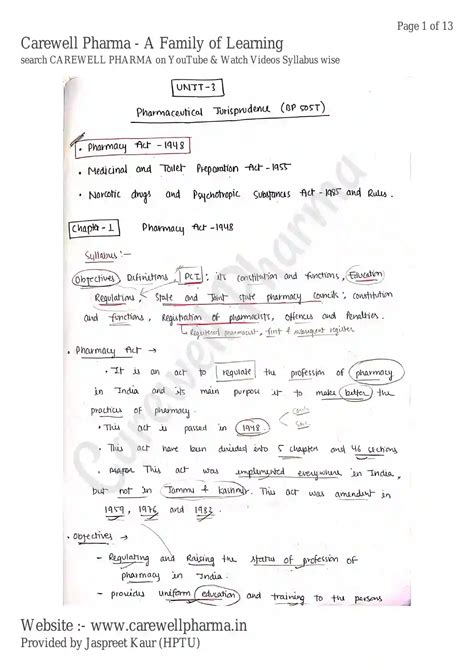 Page 1 of 13
Carewell Pharma - A Family of Learning
search CAREWELL PHARMA on YouTube & Watch Videos Syllabus wise
UNIT-3
Pharmaceutical Jurisprudence (BP 505T)
• Pharmacy Act -1948
• Medicinal and Toilet Preparation Act -1955
• Narcotic drugs and Psychotropic Substances Act -1985 and Rules.
Chapter-1 Pharmacy Act -1948
Syllabus :-
Objectives, Definitions, PCI; its constitution and functions, Education
Regulations, State and Joint state pharmacy councils; constitution
and functions, Registration of pharmacists, Offences and Penalties.
Registered pharmacist, first & subsequent register
• Pharmacy Act →
• It is an act to regulate the profession of pharmacy
in India and its main purpose it to make better the
practices of pharmacy.
• This act is passed in 1948.
• This act have been divided into 5 chapter and 46 sections
• major This act was implemented everywhere in India,
but not in Jammu & Kashmir. This act was amendent in
1959, 1976 and 1982.
• Objectives →
- Regulating and Raising the status of profession of
pharmacy in India.
- provides uniform education and training to the persons
Carewell Pharma
Website :- www.carewellpharma.in
Provided by Jaspreet Kaur (HPTU)